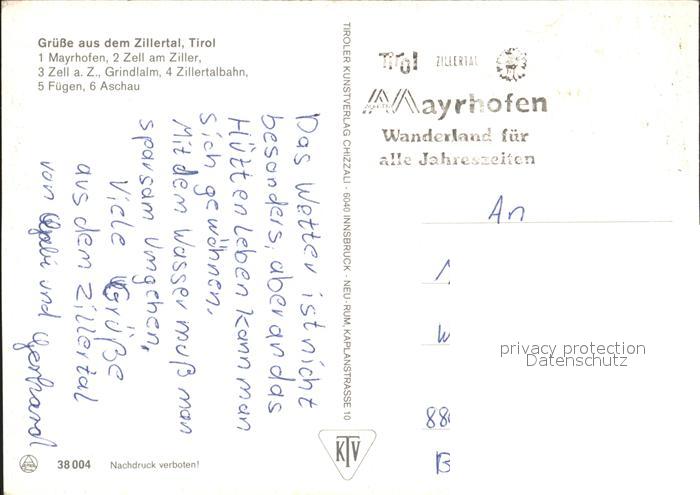 Grüße aus dem Zillertal, Tirol
1 Mayrhofen, 2 Zell am Ziller,
3 Zell a. Z., Grindlalm, 4 Zillertalbahn,
5 Fügen, 6 Aschau
Das Wetter ist nicht
besonders, aber an das
Hüttenleben kann man
sich gewöhnen.
Mit dem Wasser muß man
sparsam umgehen.
Viele Grüße
aus dem Zillertal
von Gabi und Gerhard
38 004 Nachdruck verboten!
TIROLER KUNSTVERLAG CHIZZALI · 6040 INNSBRUCK - NEU-RUM, KAPLANSTRASSE 10
KTV
Tirol ZILLERTAL
Mayrhofen
Wanderland für
alle Jahreszeiten
An
1
W
privacy protection
Datenschutz
88
B